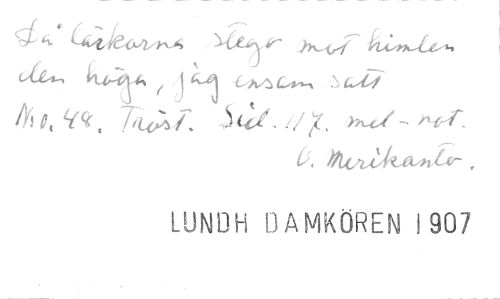 Då lärkorna stego mot himlen
den höga, jag ensam satt
N:o. 48. Tröst. Sid. 117. mel-not.
O. Merikanto.
LUNDH DAMKÖREN 1907